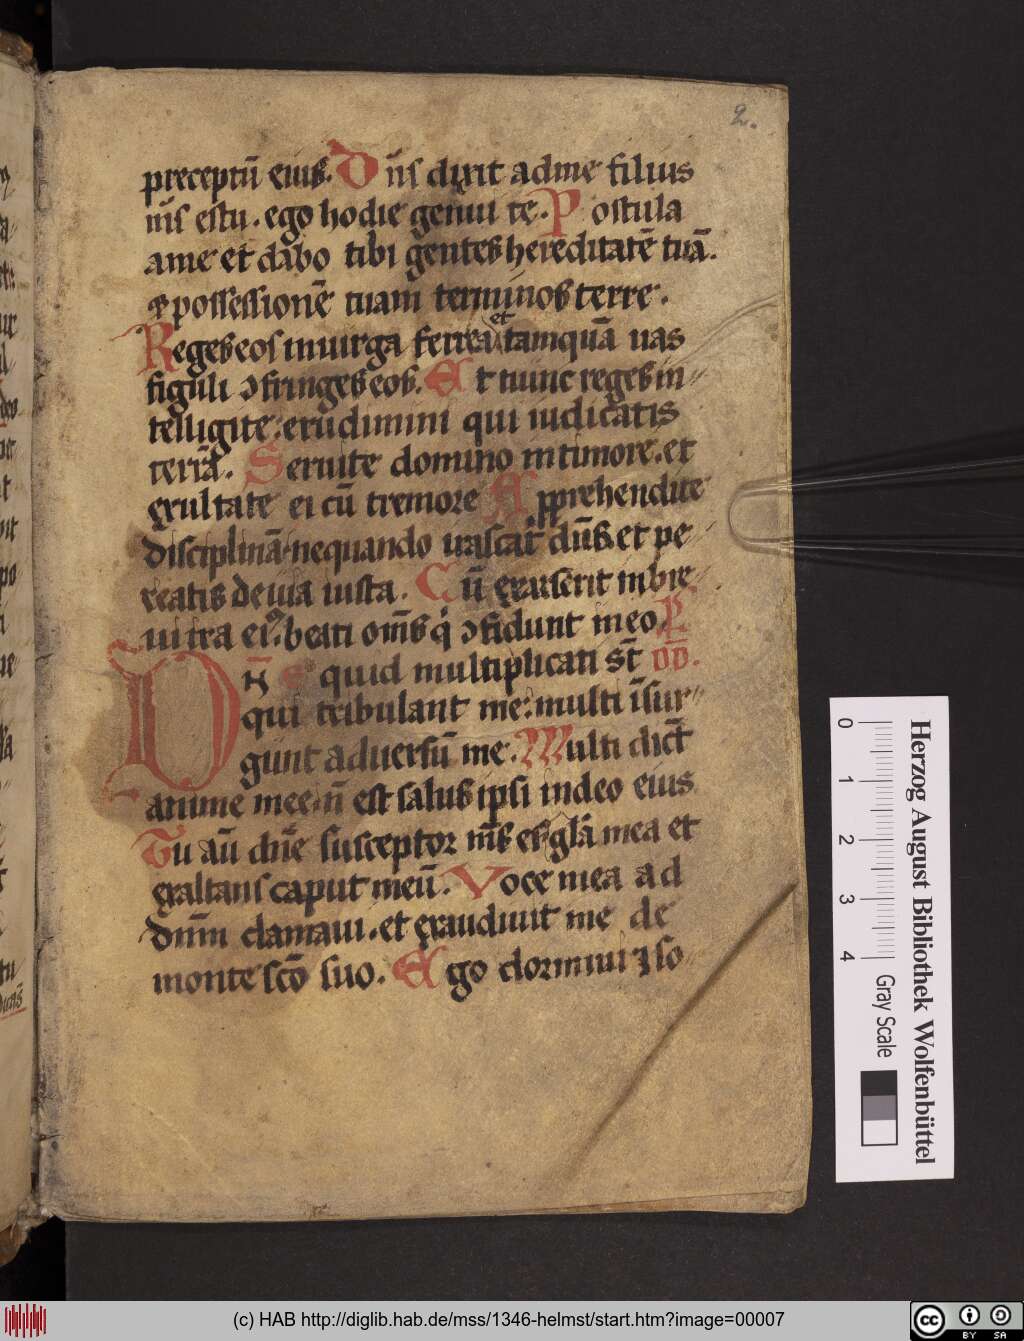 2.
preceptū eius. Dn̄s dixit adme filius
m̄s estu. ego hodie genui te. Postula
ame et dabo tibi gentes hereditatē tuā.
⁊ possessionē tuam terminos terre.
Reges eos inuirga ferrea et tamquā uas
figuli ↄfringes eos. Et nunc reges in
telligite. erudimini qui iudicatis
terrā. Seruite domino intimore. et
exultate ei cū tremore Apprehendite
disciplinā. nequando irascat᷑ dūs. et pe
reatis deuia iusta. Cū exarserit inbre
ui ira eiꝰ. beati om̄s q̇ ↄfidunt in eo. P
Dn̄e quid multiplicati st̄ DD.
qui tribulant me: multi īsur
gunt aduersū me. Multi dict̄
anime mee. n̄ est salus ipsi indeo eius
Tu aū dn̄e susceptor m̄s es glā mea et
exaltans caput meū. Voce mea ad
dnm̄ clamaui. et exaudiuit me de
monte scō suo. Ego dormiui ⁊ so
Herzog August Bibliothek Wolfenbüttel
0 1 2 3 4 Gray Scale
(c) HAB http://diglib.hab.de/mss/1346-helmst/start.htm?image=00007
cc BY SA